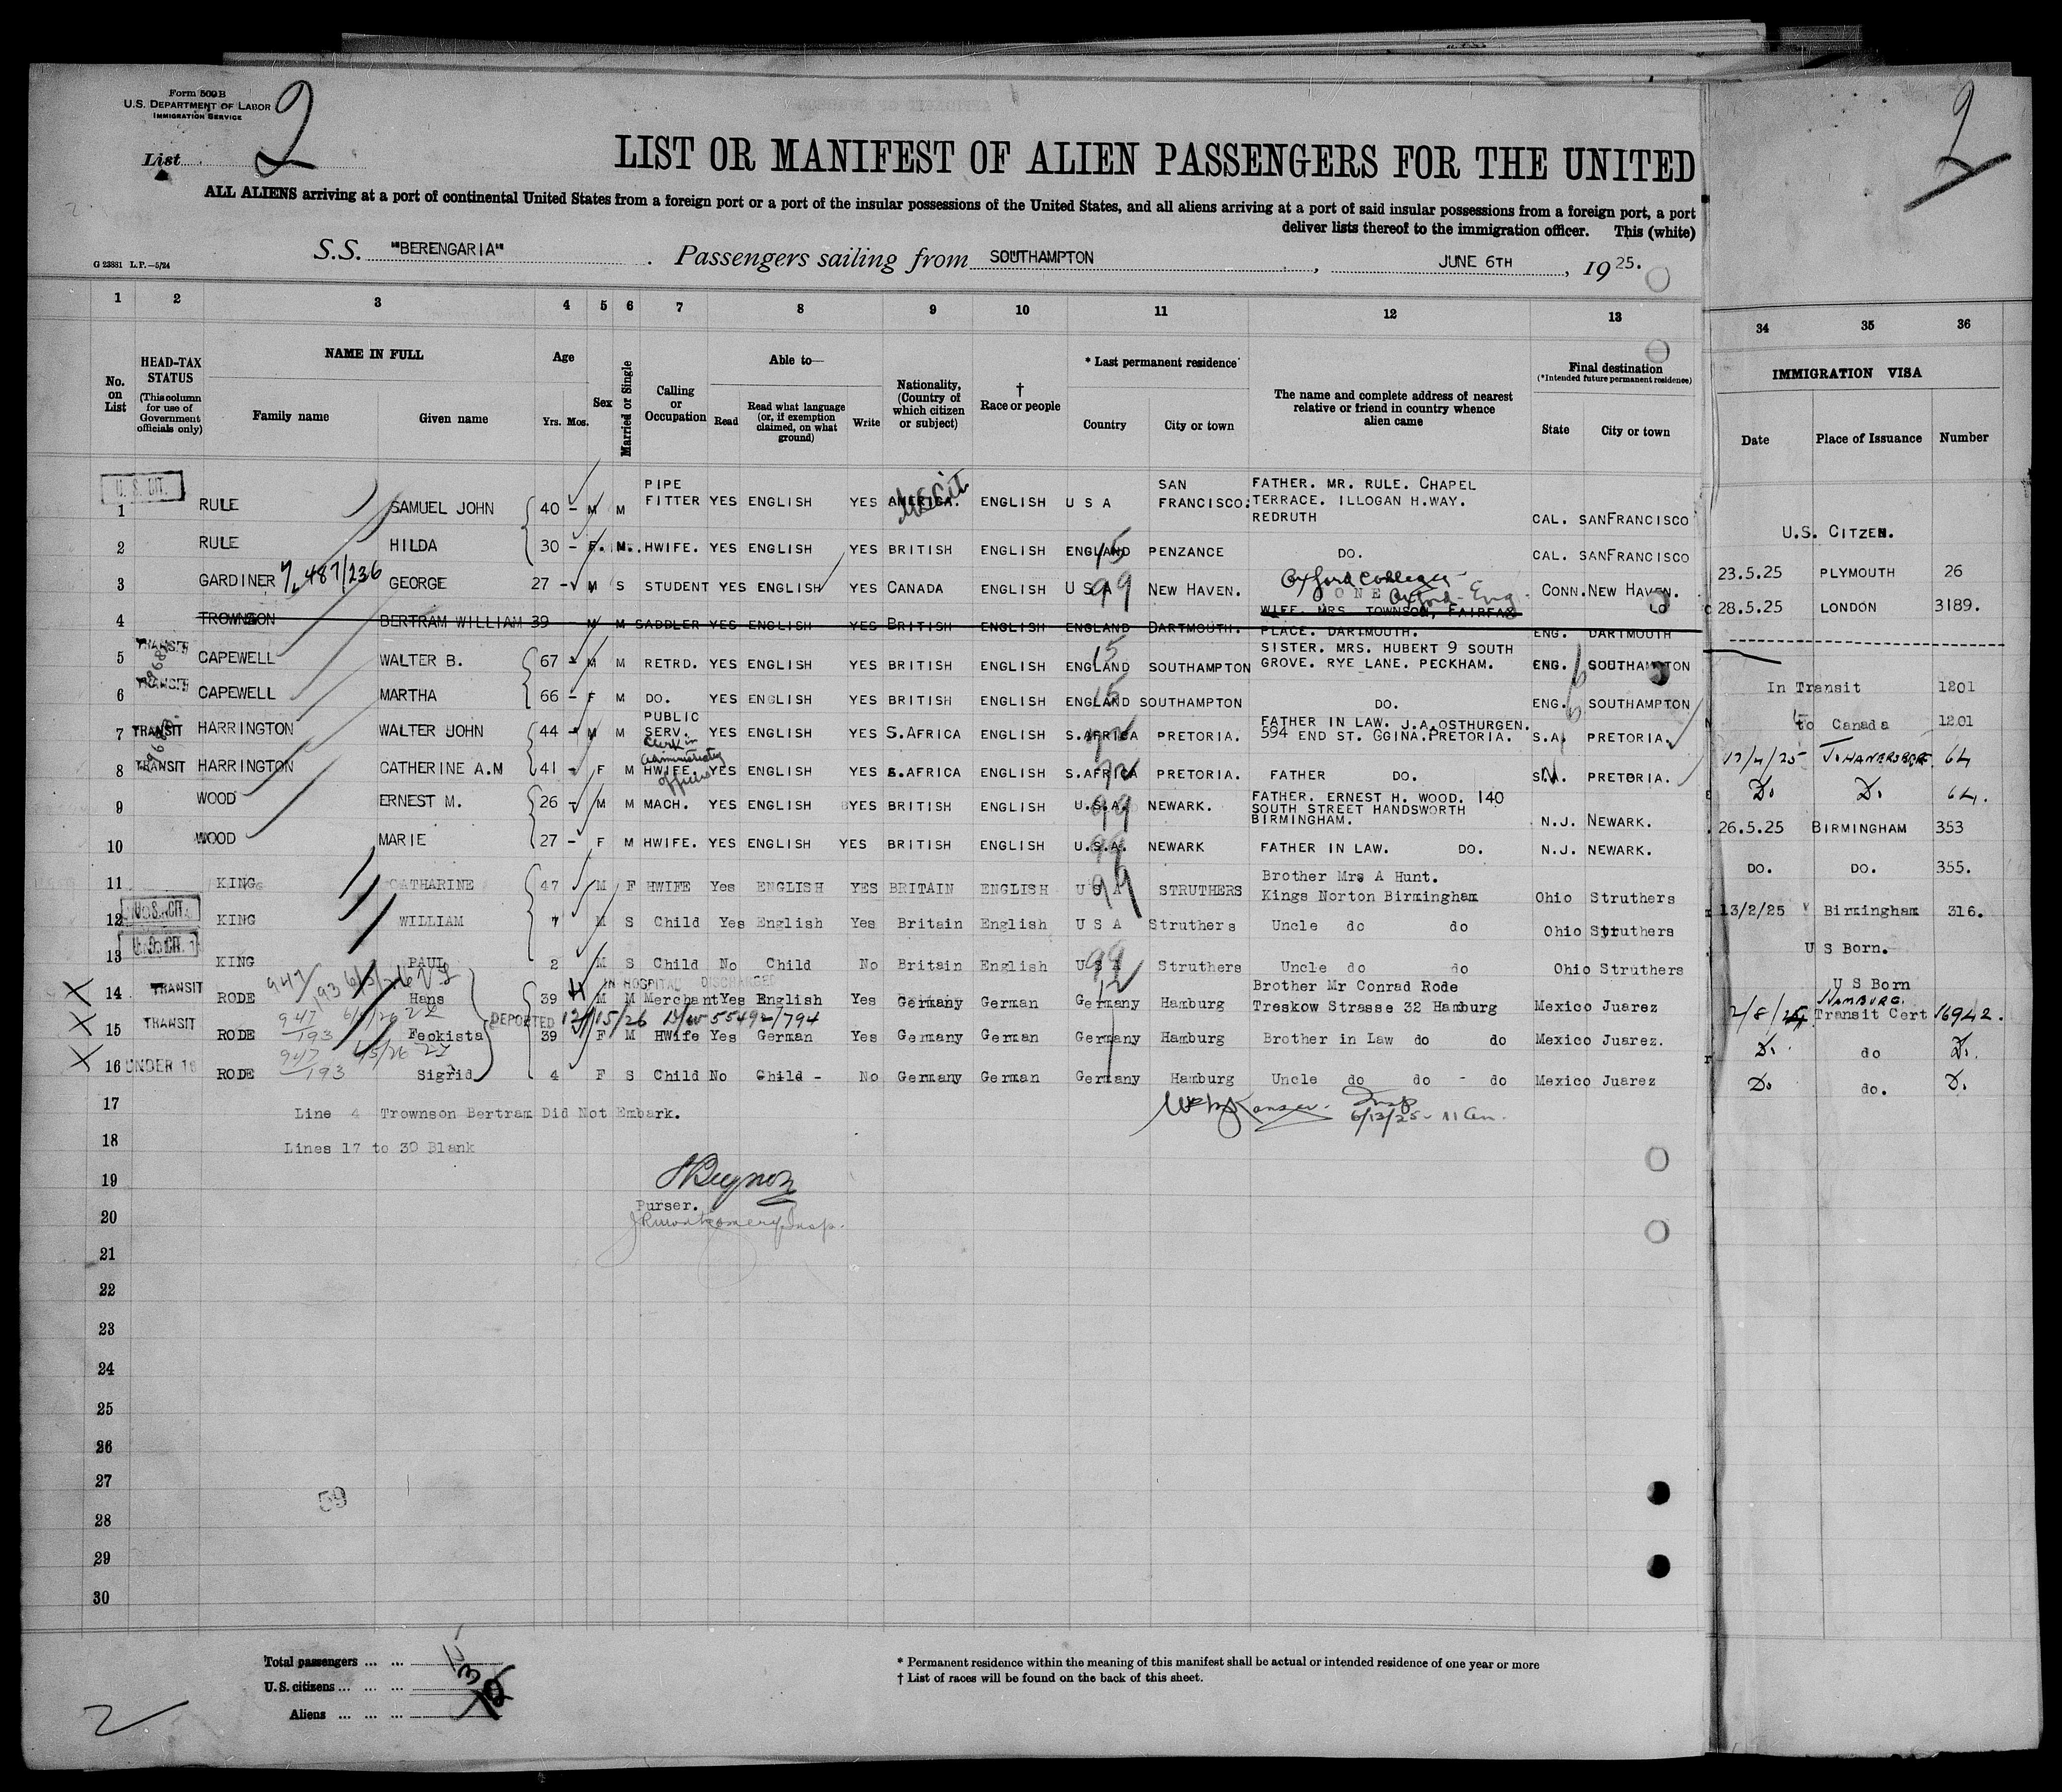 Form 500 B
U.S. DEPARTMENT OF LABOR
IMMIGRATION SERVICE
List 2
2
LIST OR MANIFEST OF ALIEN PASSENGERS FOR THE UNITED
ALL ALIENS arriving at a port of continental United States from a foreign port or a port of the insular possessions of the United States, and all aliens arriving at a port of said insular possessions from a foreign port, a port
deliver lists thereof to the immigration officer. This (white)
G 23881 L.P.—5/24
S.S. "BERENGARIA" Passengers sailing from SOUTHAMPTON, JUNE 6TH, 1925.
1 2 3 4 5 6 7 8 9 10 11 12 13 34 35 36
No. on List
HEAD-TAX STATUS (This column for use of Government officials only)
NAME IN FULL
Family name Given name
Age
Yrs. Mos.
Sex
Married or Single
Calling or Occupation
Able to—
Read Read what language (or, if exemption claimed, on what ground) Write
Nationality, (Country of which citizen or subject)
† Race or people
* Last permanent residence
Country City or town
The name and complete address of nearest relative or friend in country whence alien came
Final destination
(*Intended future permanent residence)
State City or town
IMMIGRATION VISA
Date Place of Issuance Number
U.S. CIT.
1 RULE SAMUEL JOHN 40 - M M PIPE FITTER YES ENGLISH YES AMERICA. US Cit ENGLISH U S A SAN FRANCISCO. FATHER. MR. RULE. CHAPEL TERRACE. ILLOGAN H.WAY. REDRUTH CAL. SANFRANCISCO U.S. CITZEN.
2 RULE HILDA 30 - F. M. HWIFE. YES ENGLISH YES BRITISH ENGLISH ENGLAND 15 PENZANCE DO. CAL. SANFRANCISCO 23.5.25 PLYMOUTH 26
3 GARDINER 487/236 GEORGE 27 - M S STUDENT YES ENGLISH YES CANADA ENGLISH U S A 99 NEW HAVEN. Oxford College Oxford - Eng. NONE CONN. NEW HAVEN. 28.5.25 LONDON 3189.
4 TROWNSON BERTRAM WILLIAM 39 M M SADDLER YES ENGLISH YES BRITISH ENGLISH ENGLAND DARTMOUTH. WIFE. MRS TOWNSON, FAIRFAX PLACE. DARTMOUTH. ENG. DARTMOUTH
5 TRANSIT CAPEWELL WALTER B. 67 - M M RETRD. YES ENGLISH YES BRITISH ENGLISH ENGLAND 15 SOUTHAMPTON SISTER. MRS. HUBERT 9 SOUTH GROVE. RYE LANE. PECKHAM. ENG. SOUTHAMPTON In Transit 1201
6 TRANSIT CAPEWELL MARTHA 66 - F M DO. YES ENGLISH YES BRITISH ENGLISH ENGLAND 15 SOUTHAMPTON DO. ENG. SOUTHAMPTON to Canada 1201
7 TRANSIT HARRINGTON WALTER JOHN 44 - M M PUBLIC SERV. Clerk in administrator office YES ENGLISH YES S.AFRICA ENGLISH S.AFRICA PRETORIA. FATHER IN LAW. J.A.OSTHURGEN. 594 END ST. GGINA.PRETORIA. S.A. PRETORIA. 17/4/25 JOHANESBERG 64
8 TRANSIT HARRINGTON CATHERINE A.M 41 - F M HWIFE. YES ENGLISH YES S.AFRICA ENGLISH S.AFRICA PRETORIA. FATHER DO. S.A. PRETORIA. Do. Do. 64.
9 WOOD ERNEST M. 26 - M M MACH. YES ENGLISH YES BRITISH ENGLISH U.S.A. 99 NEWARK. FATHER. ERNEST H. WOOD. 140 SOUTH STREET HANDSWORTH BIRMINGHAM. N.J. NEWARK. 26.5.25 BIRMINGHAM 353
10 WOOD MARIE 27 - F M HWIFE. YES ENGLISH YES BRITISH ENGLISH U.S.A. 99 NEWARK FATHER IN LAW. DO. N.J. NEWARK. DO. DO. 355.
11 KING CATHARINE 47 M F HWIFE Yes ENGLISH YES BRITAIN ENGLISH U S A 99 STRUTHERS Brother Mrs A Hunt. Kings Norton Birmingham Ohio Struthers 13/2/25 Birmingham 316.
12 U.S.CIT. KING WILLIAM 7 M S Child Yes English Yes Britain English U S A Struthers Uncle do do Ohio Struthers U S Born.
13 U.S.CIT. KING PAUL 2 M S Child No Child No Britain English U S A 99 Struthers Uncle do do Ohio Struthers U S Born
IN HOSPITAL DISCHARGED
14 TRANSIT RODE 947/193 6/5/26 Hans 39 M M Merchant Yes English Yes Germany German Germany 12 Hamburg Brother Mr Conrad Rode Treskow Strasse 32 Hamburg Mexico Juarez 2/8/25 HAMBURG. Transit Cert 16942.
DEPORTED 12/15/26 55492/794
15 TRANSIT RODE 947/193 6/5/26 Feokista 39 F M HWife Yes German Yes Germany German Germany Hamburg Brother in Law do do Mexico Juarez. Do. do Do.
16 UNDER 16 RODE 947/193 6/5/26 Sigrid 4 F S Child No Child - No Germany German Germany Hamburg Uncle do do - do Mexico Juarez Do. do. Do.
17 Line 4 Trownson Bertram Did Not Embark. Insp 6/13/25
18 Lines 17 to 30 Blank
19
Purser.
20 JRMontgomery Insp.
21
22
23
24
25
26
27
59
28
29
30
Total passengers
U.S. citizens 3
Aliens 12
* Permanent residence within the meaning of this manifest shall be actual or intended residence of one year or more
† List of races will be found on the back of this sheet.
2